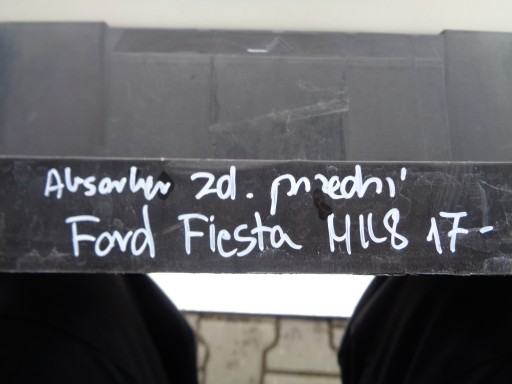 Absorber zd. przedni
Ford Fiesta MK8 17-